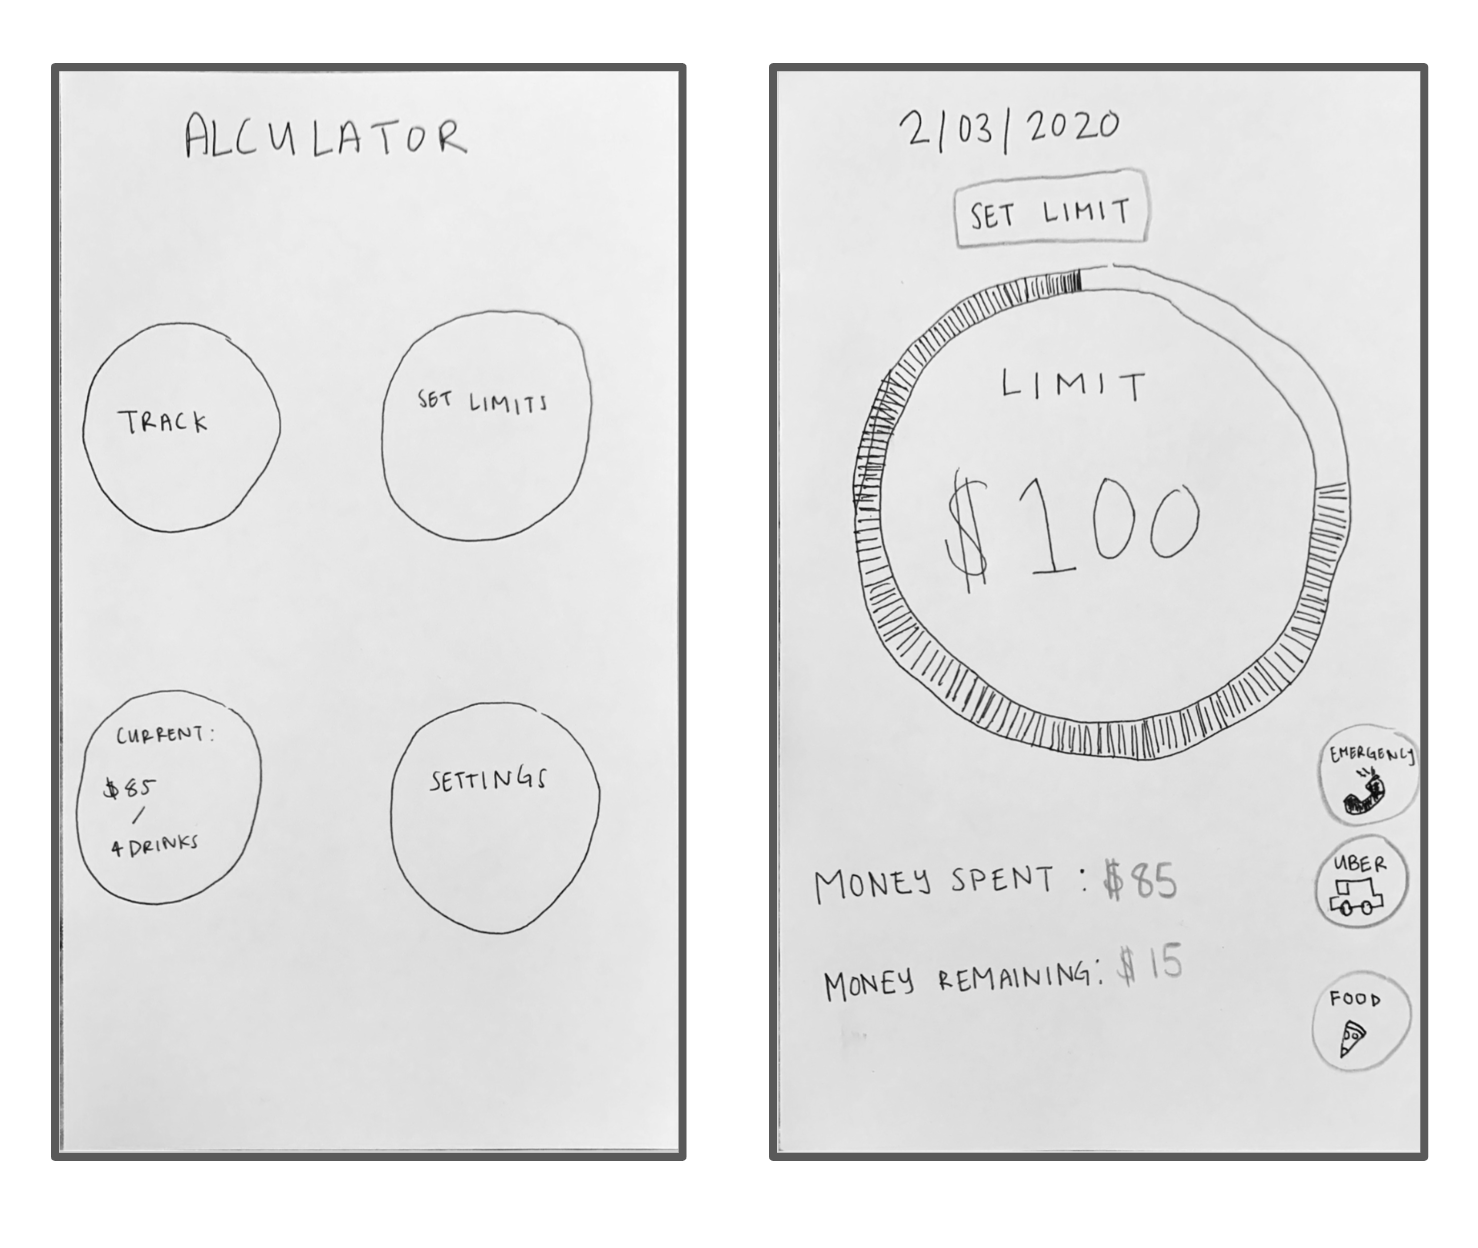 ALCULATOR
TRACK
SET LIMITS
CURRENT:
$85
/
4 DRINKS
SETTINGS
2/03/2020
SET LIMIT
LIMIT
$100
EMERGENCY
UBER
MONEY SPENT : $85
MONEY REMAINING: $15
FOOD